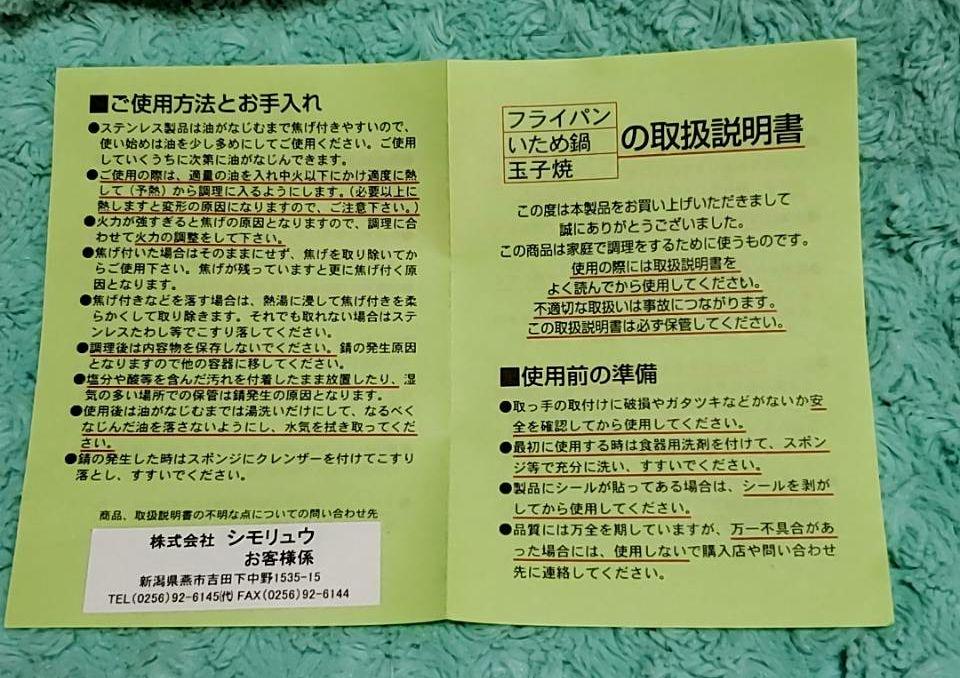 ■ご使用方法とお手入れ
●ステンレス製品は油がなじむまで焦げ付きやすいので、
使い始めは油を少し多めにしてご使用ください。ご使用
していくうちに次第に油がなじんできます。
●ご使用の際は、適量の油を入れ中火以下にかけ適度に熱
して(予熱)から調理に入るようにします。(必要以上に
熱しますと変形の原因になりますので、ご注意下さい。)
●火力が強すぎると焦げの原因となりますので、調理に合
わせて火力の調整をして下さい。
●焦げ付いた場合はそのままにせず、焦げを取り除いてか
らご使用下さい。焦げが残っていますと更に焦げ付く原
因となります。
●焦げ付きなどを落す場合は、熱湯に浸して焦げ付きを柔
らかくして取り除きます。それでも取れない場合はステ
ンレスたわし等でこすり落してください。
●調理後は内容物を保存しないでください。錆の発生原因
となりますので他の容器に移してください。
●塩分や酸等を含んだ汚れを付着したまま放置したり、湿
気の多い場所での保管は錆発生の原因となります。
●使用後は油がなじむまでは湯洗いだけにして、なるべく
なじんだ油を落さないようにし、水気を拭き取ってくだ
さい。
●錆の発生した時はスポンジにクレンザーを付けてこすり
落とし、すすいでください。
商品、取扱説明書の不明な点についての問い合わせ先
株式会社 シモリュウ
お客様係
新潟県燕市吉田下中野1535-15
TEL(0256)92-6145㈹ FAX(0256)92-6144
フライパン
いため鍋
玉子焼
の取扱説明書
この度は本製品をお買い上げいただきまして
誠にありがとうございました。
この商品は家庭で調理をするために使うものです。
使用の際には取扱説明書を
よく読んでから使用してください。
不適切な取扱いは事故につながります。
この取扱説明書は必ず保管してください。
■使用前の準備
●取っ手の取付けに破損やガタツキなどがないか安
全を確認してから使用してください。
●最初に使用する時は食器用洗剤を付けて、スポン
ジ等で充分に洗い、すすいでください。
●製品にシールが貼ってある場合は、シールを剥が
してから使用してください。
●品質には万全を期していますが、万一不具合があ
った場合には、使用しないで購入店や問い合わせ
先に連絡してください。